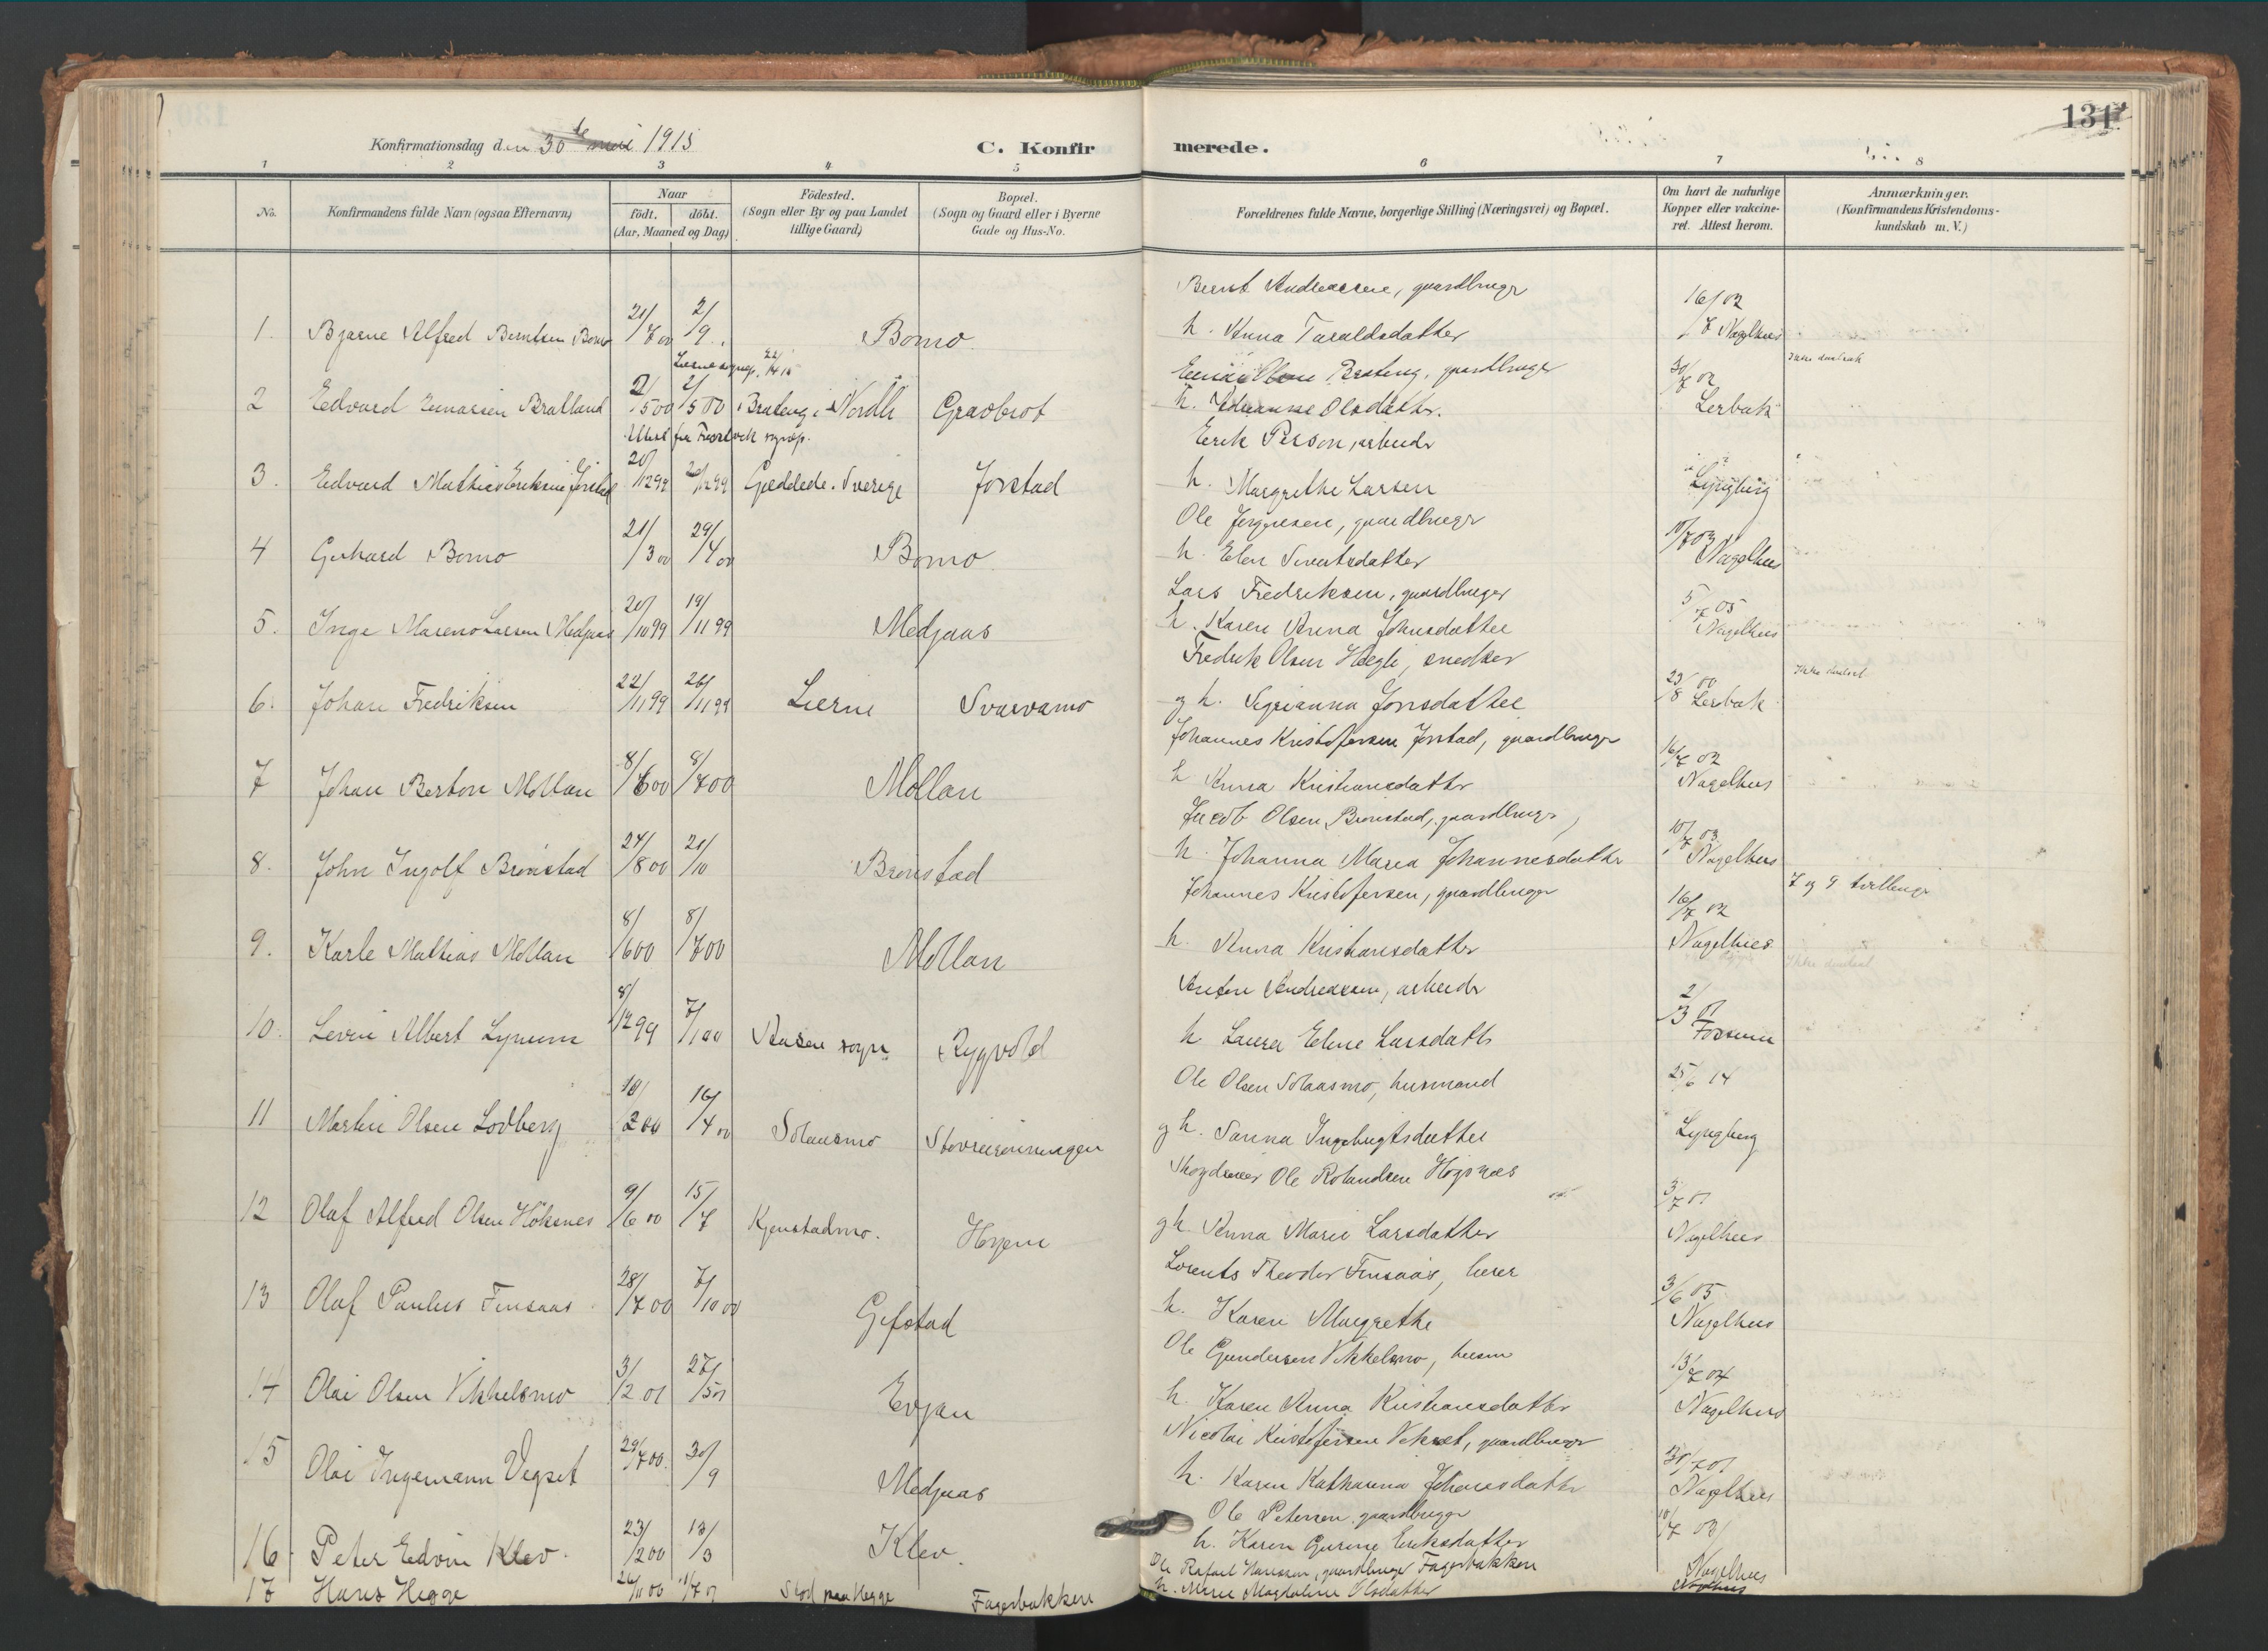 131
Konfirmationsdag den 30 te mai 1915
C. Konfirmerede.
1 2 3 4 5 6 7 8
No.
Konfirmandens fulde Navn (ogsaa Efternavn)
Naar
födt. döbt.
(Aar, Maaned og Dag)
Födested.
(Sogn eller By og paa Landet
tillige Gaard)
Bopæl.
(Sogn og Gaard eller i Byerne
Gade og Hus-No.
Forældrenes fulde Navne, borgerlige Stilling (Næringsvei) og Bopæl.
Om havt de naturlige
Kopper eller vakcine-
ret. Attest herom.
Anmærkninger.
(Konfirmandens Kristendoms-
kundskab m. V.)
Bernt Andreassen, gaardbruger
1. Bjarne Alfred Berntsen Bomo 21/7 00 2/9 Bomo h. Anna Taraldsdatter 16/7 02 Nagelhus
Brateng, gaardbruger
2 Edvard Bratland 2/5 00 2/5 00 Brateng i Nordli Gravbrot h. Olsdatter. 30/7 02 Lerbak
Erik Person, arbeider
3. Edvard Mathias Eriksen Jørstad 20/12 99 26/12 99 Gäddede. Sverige Jørstad h. Margrethe Larsen Lyngberg
Ole Jørgensen, gaardbruger
4 Gerhard Bomo 21/3 00 29/4 00 Bomo h. Elen Sivertsdatter 10/7 03 Nagelhus
Lars Fredriksen, gaardbruger
5. Inge Mareno Larsen Medjaas 20/10 99 19/11 99 Medjaas h. Karen Anna Johnsdatter 5/7 05 Nagelhus
Fredrik Olsen Hegli, snedker
6. Johan Fredriksen 22/11 99 26/11 99 Lierne Svarvamo og h. Sigrianna Jonsdatter 23/8 00 Lerbak
Johannes Kristofersen Jørstad, gaardbruger
7 Johan Berton Mollan 8/6 00 8/7 00 Mollan h Anna Kristiansdatter 16/7 02 Nagelhus
Jacob Olsen Brønstad, gaardbruger
8. John Ingolf Brønstad 24/8 00 21/10 Brønstad h. Johanna Marea Johannesdatter 10/7 03 Nagelhus
7 og 9 tvillinger
Johannes Kristofersen, gaardbruger
9. Karle Mathias Mollan 8/6 00 8/7 00 Mollan h. Anna Kristiansdatter 16/7 02 Nagelhus
Anton Andreassen, arbeider
10. Levin Albert Lynum 8/12 99 7/1 00 Aasen sogn Rygvold h Laura Eline Larsdatter 2/3 01 Fossum
Ole Olsen Solaasmo, husmand
11 Martin Olsen Lodberg 10/2 00 16/4 00 Solaasmo og h. Sanna Ingebrigtsdatter 25/6 14 Lyngberg
Ole Rolandsen Høgsnæs
12 Olaf Alfred Olsen Høksnes 9/6 00 15/7 Kjenstadmo. Hojem og h. Anna Marie Larsdatter 3/7 01 Nagelhus
Lorents Theodor Finsaas, lærer
13 Olaf Paulus Finsaas 28/7 00 7/10 00 Gifstad h. Karen Margrethe 3/6 05 Nagelhus
Ole Gundersen Vikkelsmo, husm
14 Olai Olsen Vikkelsmo 3/2 01 27/5 01 Evjan h. Karen Anna Kristiansdatter 13/7 04 Nagelhus
Nicolai Kristofersen Vekset, gaardbruger
15 Olai Ingemann Vegset 29/7 00 30/9 Medjaas h. Karen Katharina Johansdatter 30/7 01 Nagelhus
Ole Petersen gaardbruger
16. Peter Edvin Klev. 23/2 00 13/3 Klev. h. Karen Gurine Eriksdatter 10/7 03 Nagelhus
Ole Rafael Hansson, gaardbruger Fagerbakken
17 Hans Hegge 26/11 00 1/7 01 Stod paa Hegge Fagerbakken h. Marie Magdaline Olsdatter Nagelhus